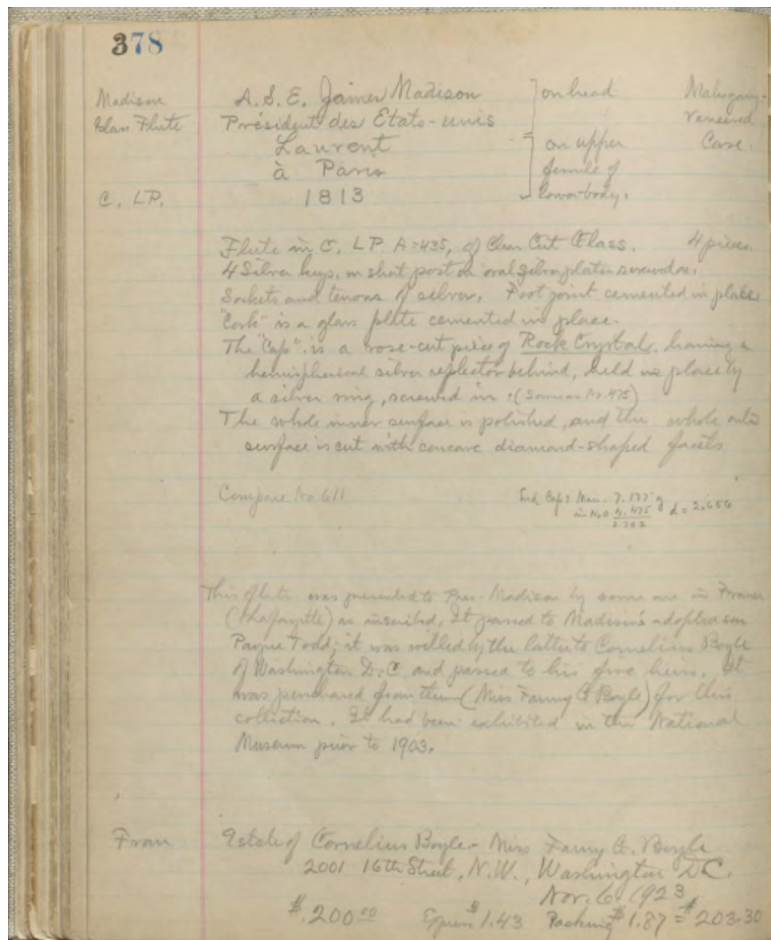 378
Madison
Glass Flute
C. LP.
A. S. E. James Madison
Président des Etats-unis
Laurent
à Paris
1813
on head
on upper
ferrule of
lower-body.
Mahogany-
veneered
Case.
Flute in C, LP. A=435, of Clear Cut Glass. 4 pieces.
4 Silver keys, on short post on oval silver plates screwed on.
Sockets and tenons of silver. Foot joint cemented in place
"Cork" is a glass plate cemented in place.
The "Cap" is a rose-cut piece of Rock Crystal, having a
hemispherical silver reflector behind, held in place by
a silver ring, screwed in: (Same as No. 475)
The whole inner surface is polished, and the whole outer
surface is cut with concave diamond-shaped facets
Compare No. 611
in H2O d = 2.656
This flute was presented to Pres. Madison by some one in France
(Lafayette) as inscribed. It passed to Madison's adopted son
Payne Todd; it was willed by the latter to Cornelius Boyle
of Washington D.C. and passed to his five heirs. It
was purchased from them (Miss Fanny G Boyle) for this
collection. It had been exhibited in the National
Museum prior to 1903.
From
Estate of Cornelius Boyle - Miss Fanny G. Boyle
2001 16th Street, N.W., Washington D.C.
Nov. 6, 1923
$200.00 Express $1.43 Packing $1.87 = $203.30